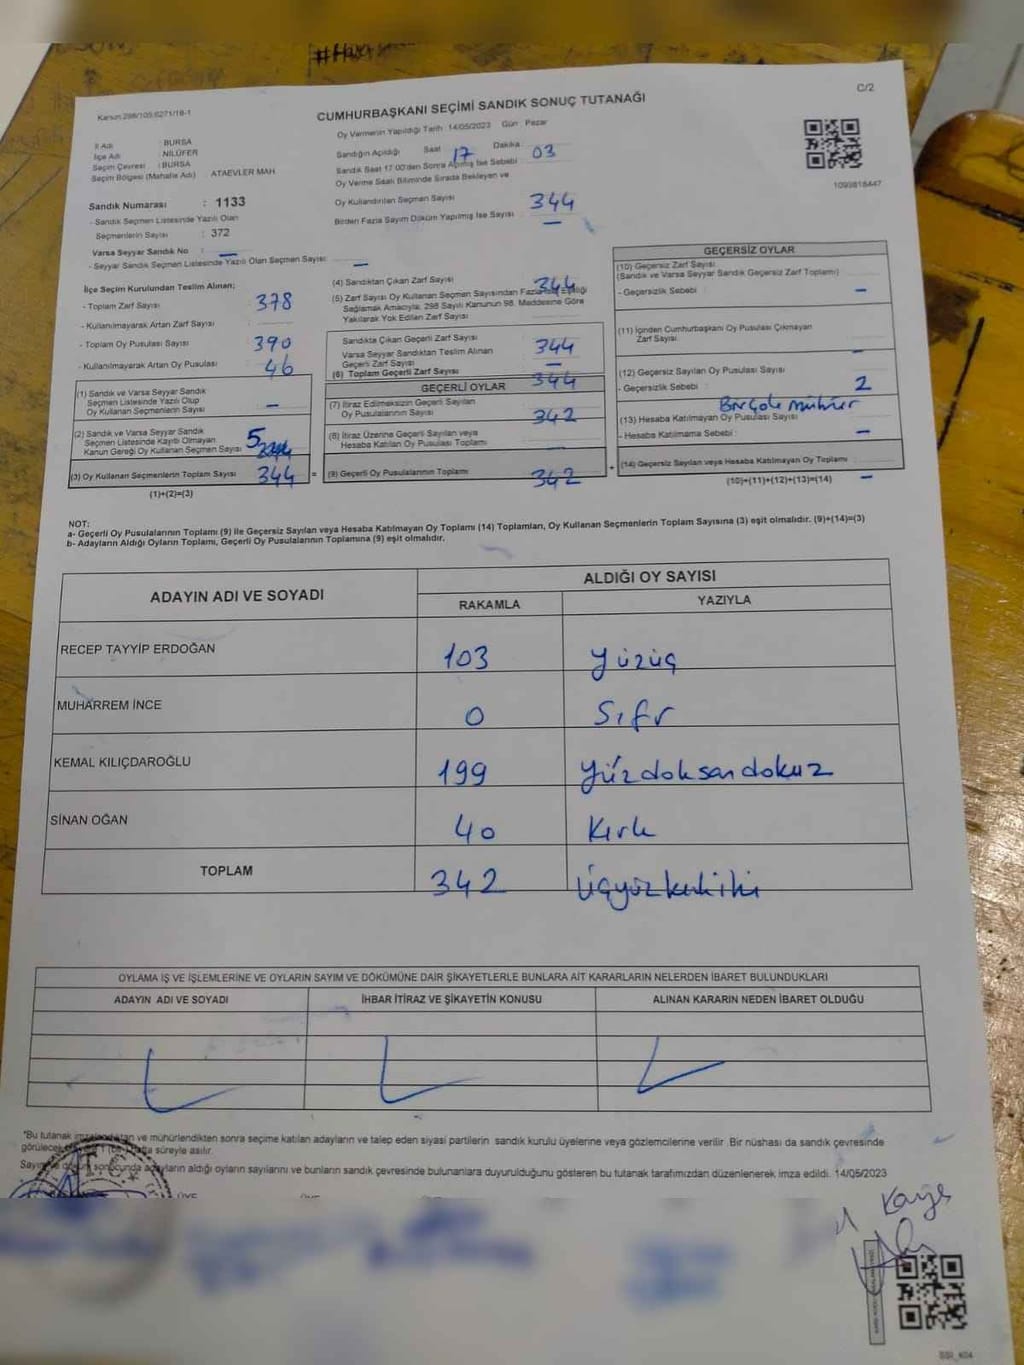 CUMHURBAŞKANI SEÇİMİ SANDIK SONUÇ TUTANAĞI
C/2
Kanun:298/105,6271/18-1
Oy Vermenin Yapıldığı Tarih :14/05/2023 Gün : Pazar
İl Adı : BURSA
İlçe Adı : NİLÜFER
Seçim Çevresi : BURSA
Seçim Bölgesi (Mahalle Adı) : ATAEVLER MAH.
Sandığın Açıldığı Saat 17 Dakika 03
Sandık Saat 17:00'den Sonra Açılmış İse Sebebi
Oy Verme Saati Bitiminde Sırada Bekleyen ve
Oy Kullandırılan Seçmen Sayısı 344
Birden Fazla Sayım Döküm Yapılmış İse Sayısı —
1093818447
Sandık Numarası : 1133
- Sandık Seçmen Listesinde Yazılı Olan
Seçmenlerin Sayısı : 372
Varsa Seyyar Sandık No : —
- Seyyar Sandık Seçmen Listesinde Yazılı Olan Seçmen Sayısı: —
İlçe Seçim Kurulundan Teslim Alınan;
- Toplam Zarf Sayısı 378
- Kullanılmayarak Artan Zarf Sayısı
- Toplam Oy Pusulası Sayısı 390
- Kullanılmayarak Artan Oy Pusulası 46
(1) Sandık ve Varsa Seyyar Sandık
Seçmen Listesinde Yazılı Olup
Oy Kullanan Seçmenlerin Sayısı —
(2) Sandık ve Varsa Seyyar Sandık
Seçmen Listesinde Kayıtlı Olmayan
Kanun Gereği Oy Kullanan Seçmen Sayısı 5
(3) Oy Kullanan Seçmenlerin Toplam Sayısı 344 =
(1)+(2)=(3)
(4) Sandıktan Çıkan Zarf Sayısı 344
(5) Zarf Sayısı Oy Kullanan Seçmen Sayısından Fazla İse Eşitliği
Sağlamak Amacıyla; 298 Sayılı Kanunun 98. Maddesine Göre
Yakılarak Yok Edilen Zarf Sayısı
Sandıkta Çıkan Geçerli Zarf Sayısı 344
Varsa Seyyar Sandıktan Teslim Alınan
Geçerli Zarf Sayısı —
(6) Toplam Geçerli Zarf Sayısı 344
GEÇERLİ OYLAR
(7) İtiraz Edilmeksizin Geçerli Sayılan
Oy Pusulalarının Sayısı 342
(8) İtiraz Üzerine Geçerli Sayılan veya
Hesaba Katılan Oy Pusulası Toplamı
(9) Geçerli Oy Pusulalarının Toplamı 342 +
GEÇERSİZ OYLAR
(10) Geçersiz Zarf Sayısı
(Sandık ve Varsa Seyyar Sandık Geçersiz Zarf Toplamı)
- Geçersizlik Sebebi : —
(11) İçinden Cumhurbaşkanı Oy Pusulası Çıkmayan
Zarf Sayısı —
(12) Geçersiz Sayılan Oy Pusulası Sayısı
- Geçersizlik Sebebi : 2
Birçok mühür
(13) Hesaba Katılmayan Oy Pusulası Sayısı
- Hesaba Katılmama Sebebi : —
(14) Geçersiz Sayılan veya Hesaba Katılmayan Oy Toplamı
(10)+(11)+(12)+(13)=(14) —
NOT:
a- Geçerli Oy Pusulalarının Toplamı (9) ile Geçersiz Sayılan veya Hesaba Katılmayan Oy Toplamı (14) Toplamları, Oy Kullanan Seçmenlerin Toplam Sayısına (3) eşit olmalıdır. (9)+(14)=(3)
b- Adayların Aldığı Oyların Toplamı, Geçerli Oy Pusulalarının Toplamına (9) eşit olmalıdır.
ADAYIN ADI VE SOYADI
ALDIĞI OY SAYISI
RAKAMLA YAZIYLA
RECEP TAYYİP ERDOĞAN 103 yüzüç
MUHARREM İNCE 0 Sıfır
KEMAL KILIÇDAROĞLU 199 yüzdoksandokuz
SİNAN OĞAN 40 Kırk
TOPLAM 342 üçyüzkırkiki
OYLAMA İŞ VE İŞLEMLERİNE VE OYLARIN SAYIM VE DÖKÜMÜNE DAİR ŞİKAYETLERLE BUNLARA AİT KARARLARIN NELERDEN İBARET BULUNDUKLARI
ADAYIN ADI VE SOYADI İHBAR İTİRAZ VE ŞİKAYETİN KONUSU ALINAN KARARIN NEDEN İBARET OLDUĞU
*Bu tutanak imzalandıktan ve mühürlendikten sonra seçime katılan adayların ve talep eden siyasi partilerin sandık kurulu üyelerine veya gözlemcilerine verilir. Bir nüshası da sandık çevresinde
görülecek 1 (bir) hafta süreyle asılır.
Sayım ve döküm sonucunda adayların aldığı oyların sayılarını ve bunların sandık çevresinde bulunanlara duyurulduğunu gösteren bu tutanak tarafımızdan düzenlenerek imza edildi. 14/05/2023
T.C.